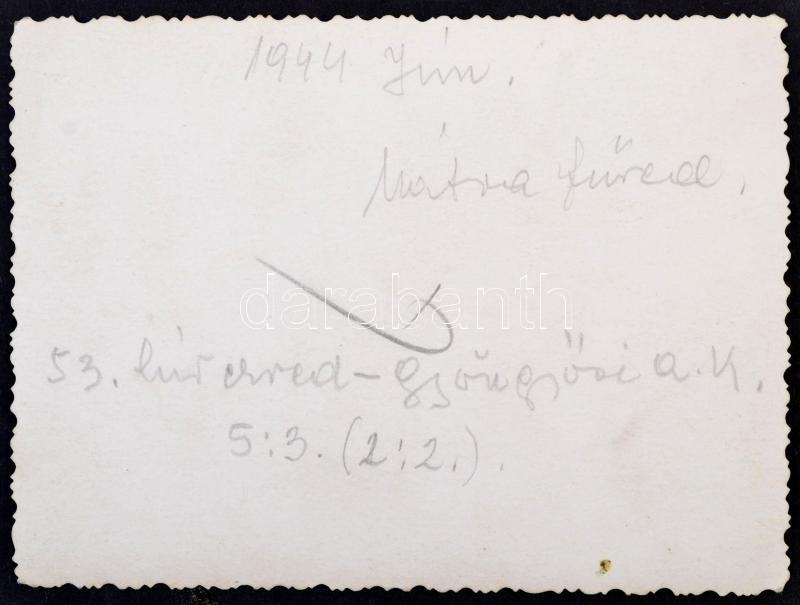 1944 Jún.
Mátra füred.
darabanth
53. hír ezred - Gyöngyösi a. K.
5:3. (2:2.).